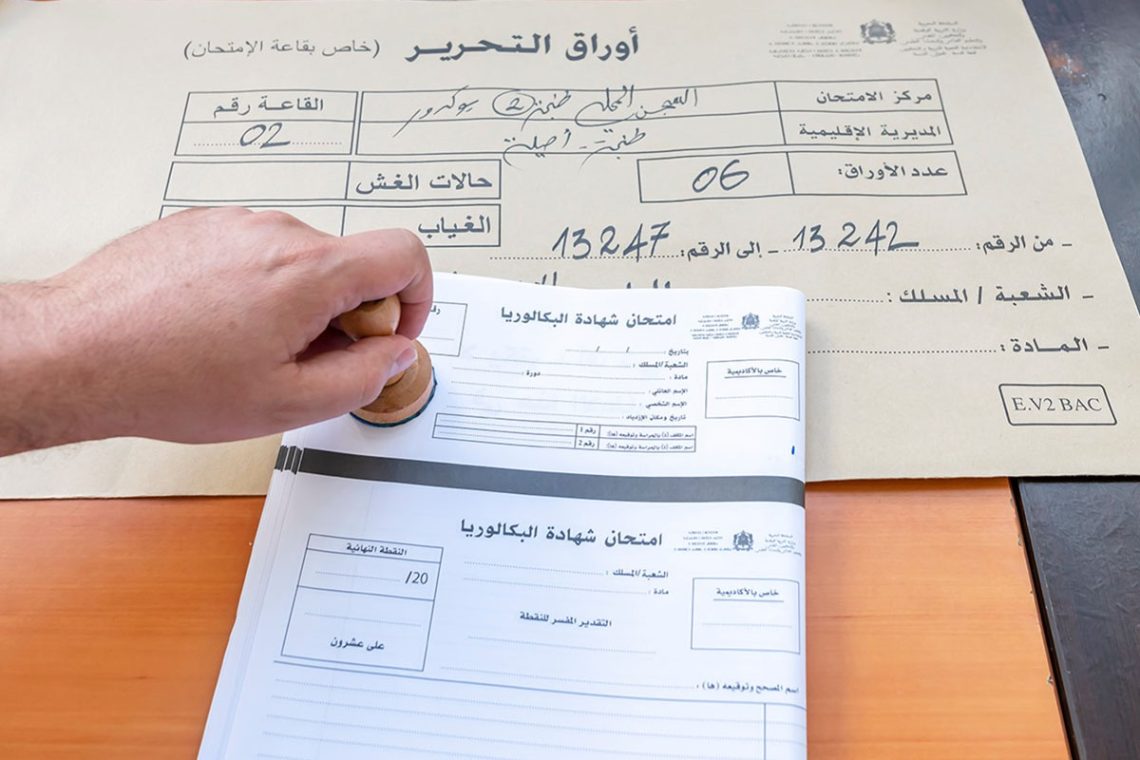 أوراق التحرير (خاص بقاعة الإمتحان)
مركز الامتحان
السجن المحلي طنجة 2
القاعة رقم
02
المديرية الإقليمية
طنجة - أصيلة
عدد الأوراق:
06
حالات الغش
الغياب
- من الرقم: 13242 - إلى الرقم: 13247
- الشعبة / المسلك :
- المادة :
E.V2 BAC
امتحان شهادة البكالوريا
بتاريخ : / /
الشعبة/المسلك :
مادة : دورة :
الإسم العائلي :
الإسم الشخصي :
تاريخ ومكان الإزدياد :
اسم المكلف (ة) بالحراسة وتوقيعه (ها): رقم 1
اسم المكلف (ة) بالحراسة وتوقيعه (ها): رقم 2
خاص بالأكاديمية
امتحان شهادة البكالوريا
الشعبة/المسلك :
مادة :
خاص بالأكاديمية
التقدير المفسر للنقطة
النقطة النهائية
/20
على عشرون
اسم المصحح وتوقيعه (ها) :